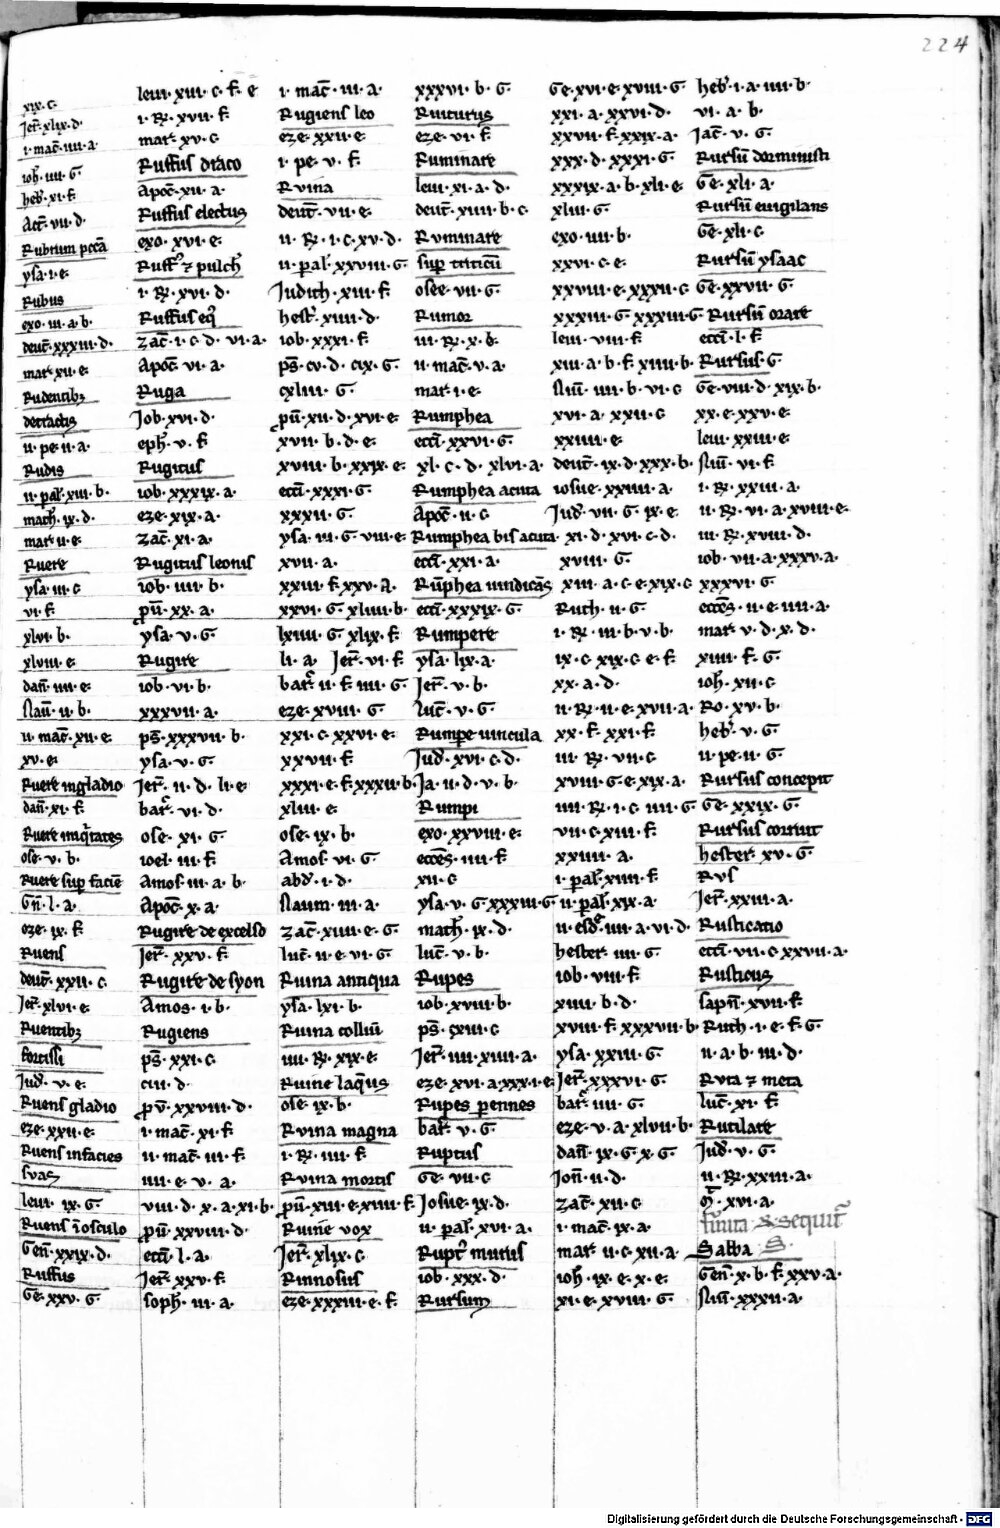 224
xix · c ·
Jer̄ · xlix · d ·
i · mac̄ · iiii · a
ioh̄ · iiii · G ·
heb̄ · xi · f ·
Act̄ · vii · d ·
Rubrum
ysa · i · e ·
Rubus
exo · iii · a · b ·
deut̄ · xxxiii · d ·
mar · xii · e ·
Rudentibꝫ
detractis
ii · pe · ii · a ·
Rudis
ii · pal̄ · xiii · b ·
math̄ · ix · d ·
mar · ii · e ·
Ruere
ysa · iii · c
vi · f ·
xlvi · b ·
xlviii · e ·
dan̄ · iiii · e ·
Nau̅ · ii · b ·
ii · mac̄ · xii · e ·
xv · e ·
Ruere in gladio
dan̄ · xi · f ·
Ruere
ose · v · b ·
Ruere sup faciē
Gn̄ · l · a ·
eze · ix · f ·
Ruens
deut̄ · xxii · c ·
Jer̄ · xlvi · e ·
Ruentibꝫ
fortissi
Jud̄ · v · e ·
Ruens gladio
eze · xxii · e ·
Ruens in facies
suas
leui · ix · G ·
Ruens ī osculo
Gen̄ · xxix · d ·
Ruffus
Ge · xxv · G ·
leui · xiii · c · f · e
i · R̄ · xvii · f ·
mar · xv · c ·
Ruffus draco
Apoc̄ · xii · a ·
Ruffus electus
exo · xvi · e ·
Ruff᷒ ⁊ pulch᷒
i · R̄ · xvi · d ·
Ruffus eq᷒
zac̄ · i · c · d · vi · a ·
Apoc̄ · vi · a ·
Ruga
Job · xvi · d ·
eph̄ · v · f
Rugitus
iob · xxxix · a ·
eze · xix · a ·
zac̄ · xi · a ·
Rugitus leonis
iob · iiii · b ·
pū · xx · a ·
ysa · v · G ·
Rugire
iob · vi · b ·
xxxvii · a ·
ps̄ · xxxvii · b ·
ysa · v · G ·
Jer̄ · ii · d · li · e ·
bar̄ · vi · d ·
ose · xi · G ·
ioel · iii · f ·
Amos · iii · a · b ·
Apoc̄ · x · a ·
Rugire de excelso
Jer̄ · xxv · f ·
Rugire de syon
Amos · i · b ·
Rugiens
ps̄ · xxi · c ·
ciii · d ·
pv̄ · xxviii · d ·
i · mac̄ · xi · f ·
ii · mac̄ · iii · f ·
iiii · e · v · a ·
viii · d · x · a · xi · b ·
pū · xxviii · d ·
eccī · l · a ·
Jer̄ · xxv · f ·
soph̄ · iii · a ·
i · mac̄ · iii · a ·
Rugiens leo
eze · xxii · e ·
i · pe · v · f ·
Rvina
deut̄ · vii · e ·
ii · R̄ · i · c · xv · d ·
ii · pal̄ · xxviii · G
Judith · xiii · f
hest̄ · xiiii · d ·
iob · xxxi · f ·
ps̄ · cv · d · cix · G
cxliii · G ·
pū · xii · d · xvi · e
xvii · b · d · e ·
xviii · b · xxix · e ·
eccī · xxxi · G ·
xxxii · G ·
ysa · iii · G · viii · e
xvii · a ·
xxiii · f · xxv · a ·
xxvi · G · xliiii · b
lxiiii · G · xlix · f
li · a Jer̄ · vi · f
bar̄ · ii · f · iiii · G
eze · xviii · G ·
xxi · c · xxvi · e ·
xxvii · f
xxxi · e · f · xxxii · b
xliii · e ·
ose · ix · b ·
Amos · vi · G
abd̄ · i · d ·
Naum · iii · a ·
zac̄ · xiiii · e · G
luc̄ · ii · e · vi · G
Ruina antiqua
ysa · lxi · b ·
Ruina colliū
iiii · R̄ · xix · e ·
Ruine laq̄us
ose · ix · b ·
Rvina magna
i · R̄ · iiii · f ·
Rvina mortis
pū · xiii · e · xiiii · f
Ruine vox
Jer̄ · xlix · c
Rinnosus
eze · xxxiii · e · f ·
xxxvi · b · G
Ruiturus
eze · vi · f ·
Ruminare
leui · xi · a · d ·
deut̄ · xiiii · b · c ·
Rvminare
sup triticū
osee · vii · G ·
Rumor
iii · R̄ · x · b ·
ii · mac̄ · v · a ·
mar · i · e ·
Rumphea
eccī · xxvi · G ·
xl · c · d · xlvi · a ·
Rumphea acuta
Apoc̄ · ii · c
Rumphea bis acuta
eccī · xxi · a ·
Rūphea vindicās
eccī · xxxix · G
Rumpere
ysa · lix · a ·
Jer̄ · v · b ·
luc̄ · v · G
Rumpe uincula
Jud̄ · xvi · c · d ·
Ja · ii · d · v · b ·
Rumpi
exo · xxviii · e ·
ecces̄ · iiii · f
xii · c
ysa · v · G · xxxiii · G
math̄ · ix · d ·
luc̄ · v · b ·
Rupes
iob · xviii · b ·
ps̄ · cxiii · c
Jer̄ · iiii · xiiii · a ·
eze · xvi · a · xxxi · e
Rupes pennes
bar̄ · v · G ·
Ruptus
Ge · vii · c
Josue · ix · d ·
ii · pal̄ · xvi · a ·
Rupt᷒ murus
iob · xxx · d ·
Rursum
Ge · xvi · e · xviii · G
xxi · a · xxvi · d ·
xxvii · f · xxix · a ·
xxx · d · xxxi · G ·
xxxix · a · b · xli · e
xliii · G ·
exo · iiii · b ·
xxvi · c · e ·
xxviii · e · xxxii · c
xxxiii · G · xxxiiii · G
leui · viii · f
xiii · a · b · f · xiiii · b
Nū · iiii · b · vi · c
xvi · a · xxii · c
xxiiii · e ·
deut̄ · ix · d · xxx · b
iosue · xxiiii · a ·
Jud̄ · vii · G · ix · e
xi · d · xvi · c · d ·
xviii · G ·
xiii · a · c · e · xix · c
Ruth · ii · G ·
i · R̄ · iii · b · v · b ·
ix · c · xix · c · e · f
xx · a · d ·
ii · R̄ · ii · e · xvii · a
xx · f · xxi · f
iii · R̄ · vii · c
xviii · G · e · xix · a ·
iiii · R̄ · i · c · iiii · G
vii · c · xiii · f
xxiiii · a ·
i · pal̄ · xiiii · f
ii · pal̄ · xix · a ·
ii · esd᷒ · iiii · a · vi · d
hester · iiii · G
iob · viii · f
xiiii · b · d ·
xviii · f · xxxvii · b
ysa · xxiii · G ·
Jer̄ · xxxvi · G ·
bar̄ · iiii · G
eze · v · a · xlvii · b
dan̄ · ix · G · x · G
Jon̄ · ii · d ·
zac̄ · xii · c
i · mac̄ · ix · a ·
mar · ii · c · xii · a
ioh · ix · e · x · e ·
xi · e · xviii · G ·
heb̄ · i · a · iiii · b
vi · a · b ·
Jac̄ · v · G
Rursū dormiuisti
Ge · xli · a ·
Rursū euigilans
Ge · xli · c
Rursū ysaac
Ge · xxvii · G
Rursū orare
eccī · l · f
Rursus G
Ge · viii · d · xix · b ·
xx · e · xxv · e ·
leui · xxiii · e ·
Nū · vi · f
i · R̄ · xxiii · a ·
ii · R̄ · vi · a · xviii · e
iii · R̄ · xviii · d ·
iob · vii · a · xxxv · a
xxxvi · G
ecces̄ · ii · e · iiii · a ·
mar · v · d · x · d ·
xiiii · f · G
ioh̄ · xii · c
Ro · xv · b ·
heb̄ · v · G
ii · pe · ii · G
Rursus concepit
Ge · xxix · G
Rursus corruit
hester · xv · G
Rvs
Jer̄ · xxiii · a ·
Rusticatio
eccī · vii · c · xxvii · a
Rusticus
sapn̄ · xvii · f
Ruth · i · e · f · G
ii · a · b · iii · d ·
Rvta ⁊ meta
luc̄ · xi · f
Rutilare
Jud̄ · v · G ·
ii · R̄ · xxiii · a ·
xvi · a ·
finita R sequit᷒
Sabba S ·
Gen̄ · x · b · f · xxv · a
Nū · xxxii · a ·
Digitalisierung gefördert durch die Deutsche Forschungsgemeinschaft - DFG